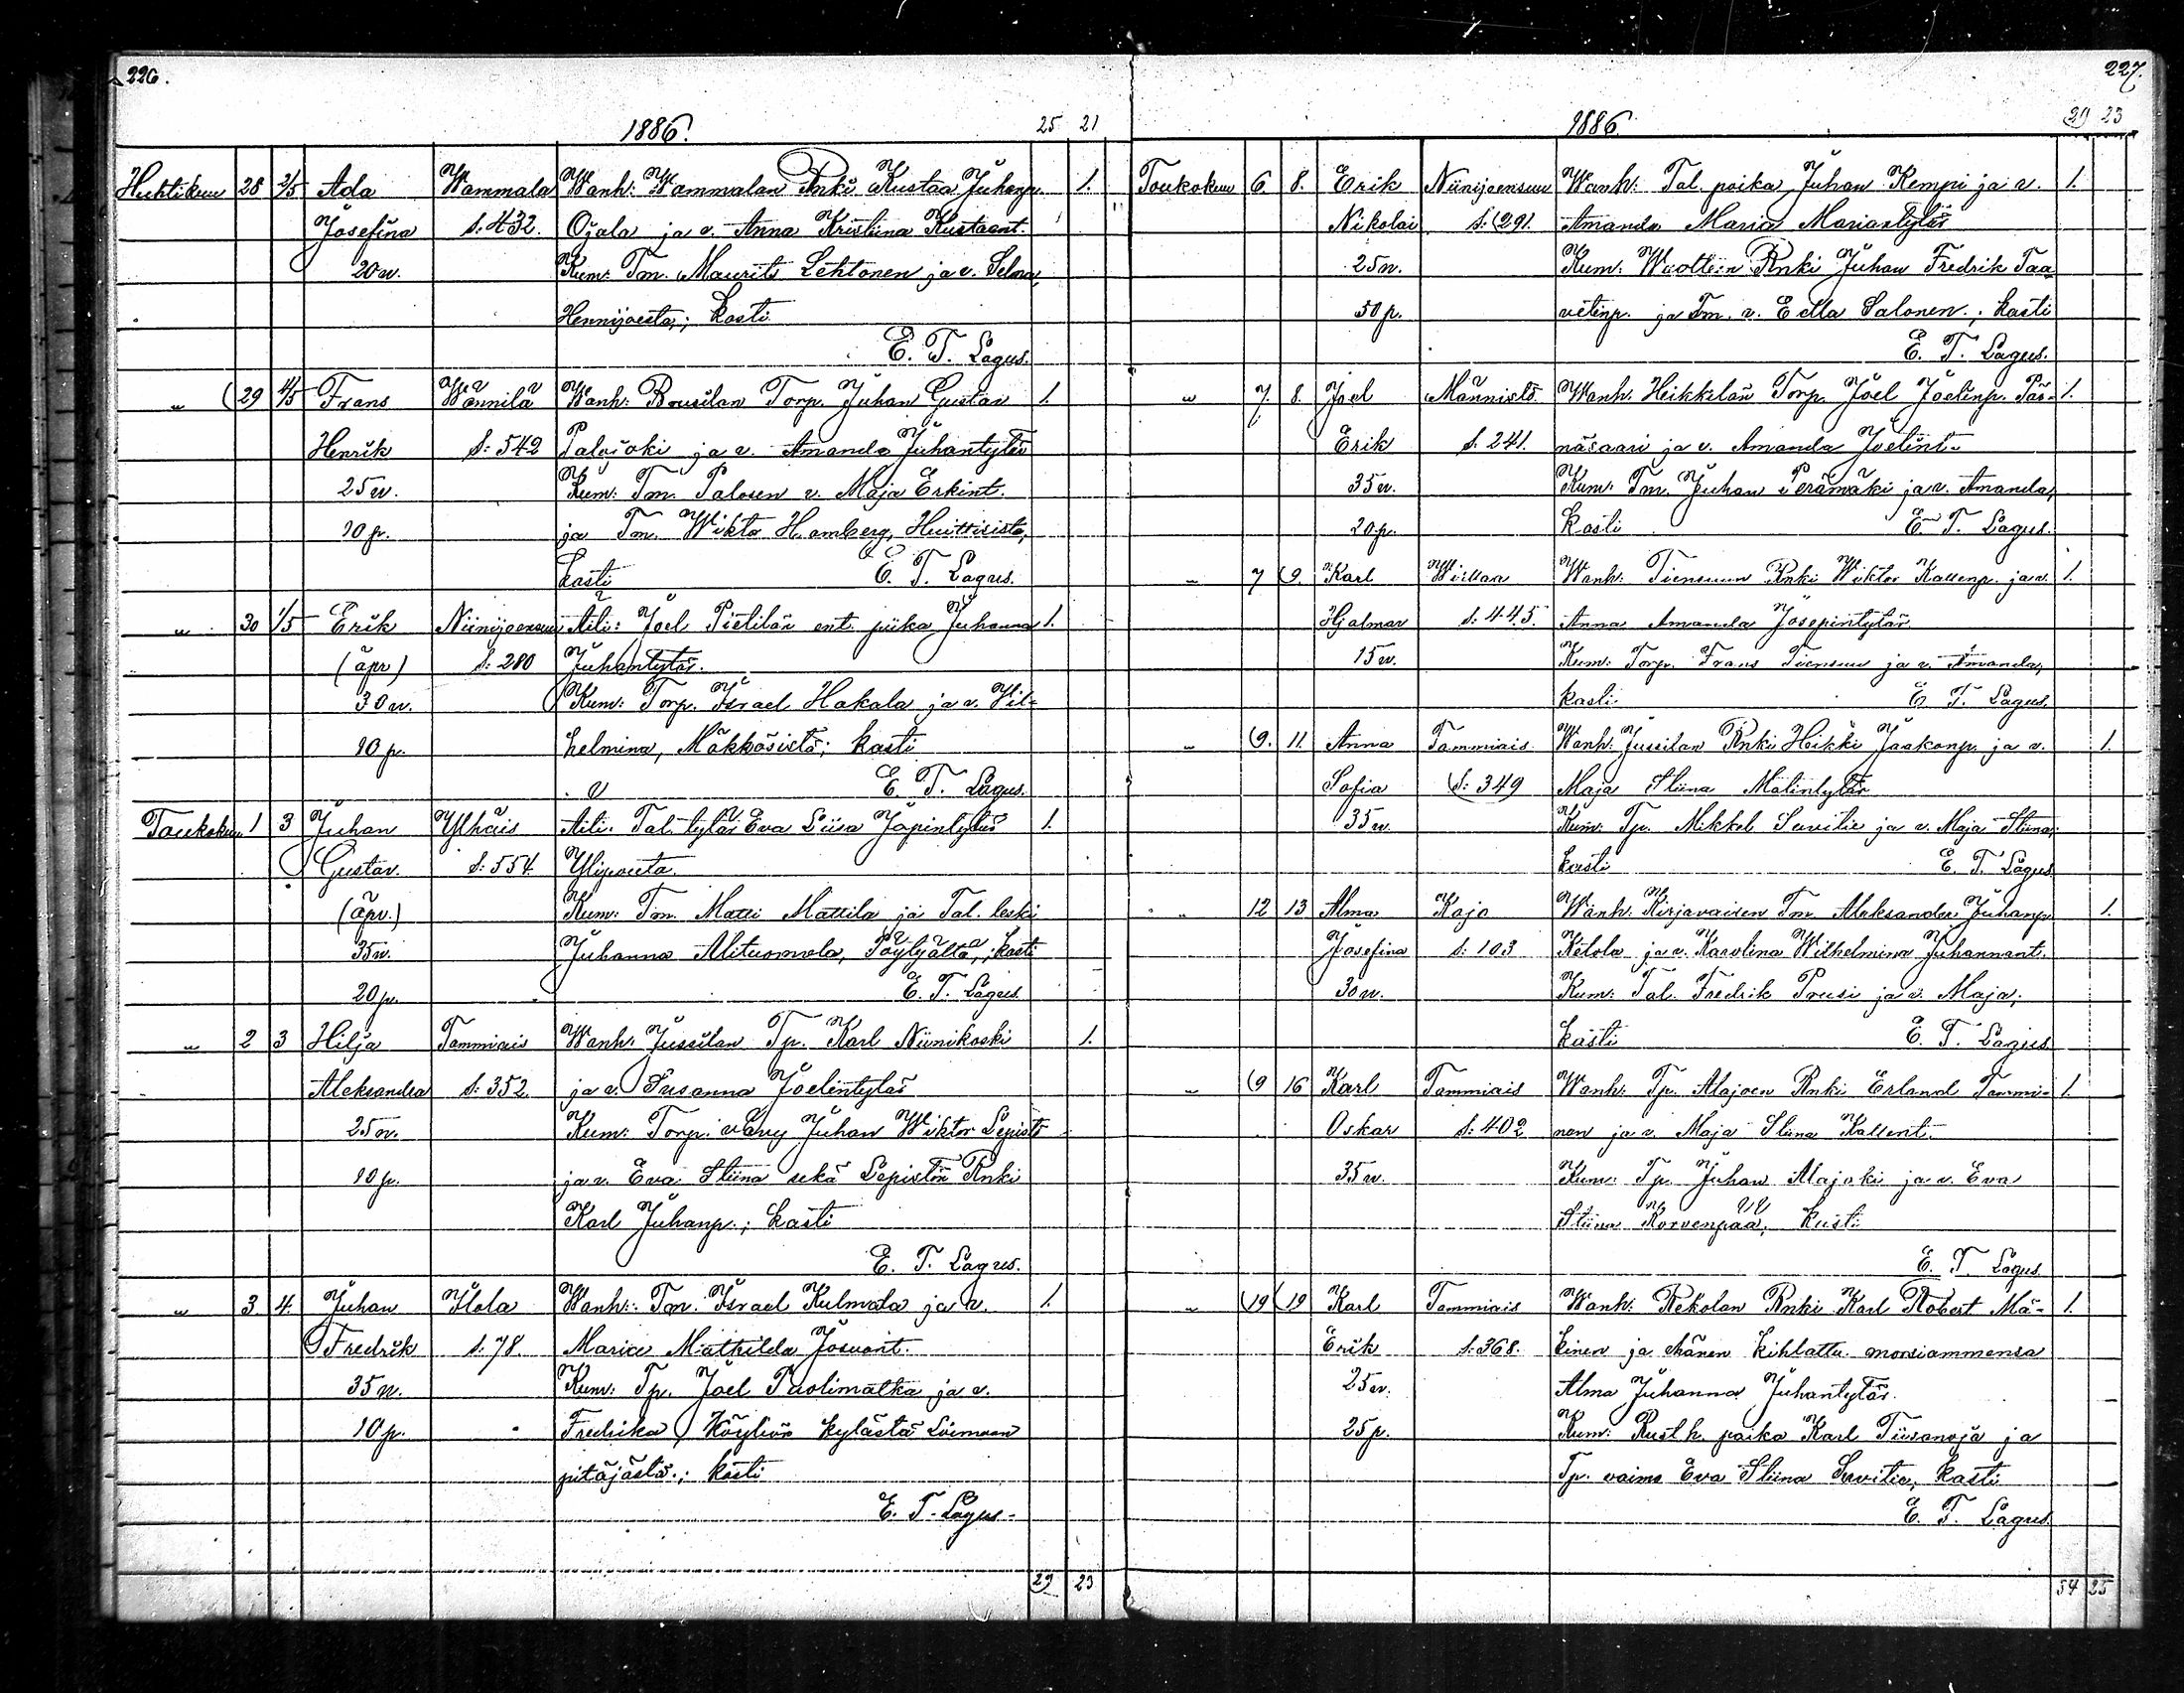 226.
1886.
25 21
Huhtikuu 28 2/5 Ada Wammala Wanh: Wammalan Rnki Kustaa Juhanp. 1.
Josefina S: 432. Ojala ja v. Anna Kristiina Kustaant.
20 v. Kum: Tm. Maurits Lehtonen ja v. Selma,
Hennijoesta; kasti
E. T. Lagus.
" 29 4/5 Frans Wännilä Wanh: Torp. Juhan Gustav 1.
Henrik S: 542 Palojoki ja v. Amanda Juhantytär
25 v. Kum: Tm. Palosen v. Maja Erkint.
10 p. ja Tm. Wikto Hamberg, Huittisista,
kasti E. T. Lagus.
" 30 1/5 Erik Niinijoensuu Äiti: Joel Pietilän ent. piika Juhanna 1.
(äpr) S: 280 Juhantytär.
30 v. Kum: Torp. Israel Hakala ja v. Vil-
10 p. helmina, Mäkkösistä; kasti
E. T. Lagus.
Toukokuu 1 3 Juhan Ylhäis Äiti: Tal. tytär Eva Liisa Japintytär 1.
Gustav. S: 554. Ylipouta.
(äpr.) Kum: Tm. Matti Mattila ja Tal. leski
35 v. Juhanna Alituomola, Pöytyältä; kasti
20 p. E. T. Lagus.
" 2 3 Hilja Tammiais Wanh: Jussilan Tp. Karl Niinikoski 1.
Aleksandra S: 352. ja v. Susanna Joelintytär
25 v. Kum: Torp. vävy Juhan Wiktor Lepistö
10 p. ja v. Eva Stiina sekä Lepistön Rnki
Karl Juhanp.; kasti
E. T. Lagus.
" 3. 4. Juhan Ilola Wanh: Tm. Israel Kulmala ja v. 1.
Fredrik S: 78. Maria Mathilda Josuant.
35 v. Kum: Tp. Joel Puolimatka ja v.
10 p. Fredrika, Köyliön kylästä Loimaan
pitäjästä; kasti
E. T. Lagus.
29 23
227.
1886.
29 23
Toukokuu 6. 8. Erik Niinijoensuu Wanh: Tal. poika Juhan Kempi ja v. 1.
Nikolai S: 291. Amanda Maria Mariantytär
25 v. Kum: Rnki Juhan Fredrik Taa-
50 p. vetinp. ja Tm. v. Edla Salonen; kasti
E. T. Lagus.
" 7. 8. Joel Männistö Wanh. Heikkilän Torp. Joel Joelinp. Pää- 1.
Erik S. 241. näsaari ja v. Amanda Joelint.
35 v. Kum: Tm. Juhan Perämäki ja v. Amanda,
20 p. kasti E. T. Lagus.
" 7 9. Karl Wirtaa Wanh: Tiensuun Rnki Wiktor Kallenp. ja v. 1.
Hjalmar S: 445. Anna Amanda Josepintytär
15 v. Kum: Torp. Frans Tiensuu ja v. Amanda,
kasti. E. T. Lagus.
" 9. 11. Anna Tammiais Wanh: Jussilan Rnki Heikki Jaakonp. ja v. 1.
Sofia S: 349 Maja Stiina Matintytär
35 v. Kum: Tp. Mikkel Savitie ja v. Maja Stiina;
kasti E. T. Lagus.
" 12 13 Alma Kojo Wanh: Kirjavaisen Tm. Aleksander Juhanp. 1.
Josefina S: 103 Ketola ja v. Karolina Wilhelmina Juhannant.
30 v. Kum: Tal. Fredrik Prusi ja v. Maja,
kasti E. T. Lagus.
" 9 16 Karl Tammiais Wanh: Tp. Alajoen Rnki Erland Tammi- 1.
Oskar S: 402 nen ja v. Maja Stiina Kallent.
35 v. Kum: Tp. Juhan Alajoki ja v. Eva
Stiina Korvenpää, kasti
E. T. Lagus.
" 19 19 Karl Tammiais Wanh: Rekolan Rnki Karl Robert Mä- 1.
Erik S: 368. kinen ja hänen kihlattu morsiammensa
25 v. Alma Juhanna Juhantytär.
25 p. Kum: Rusth. poika Karl Tiisanoja ja
Tp. vaimo Eva Stiina Savitie, kasti
E. T. Lagus.
34 25